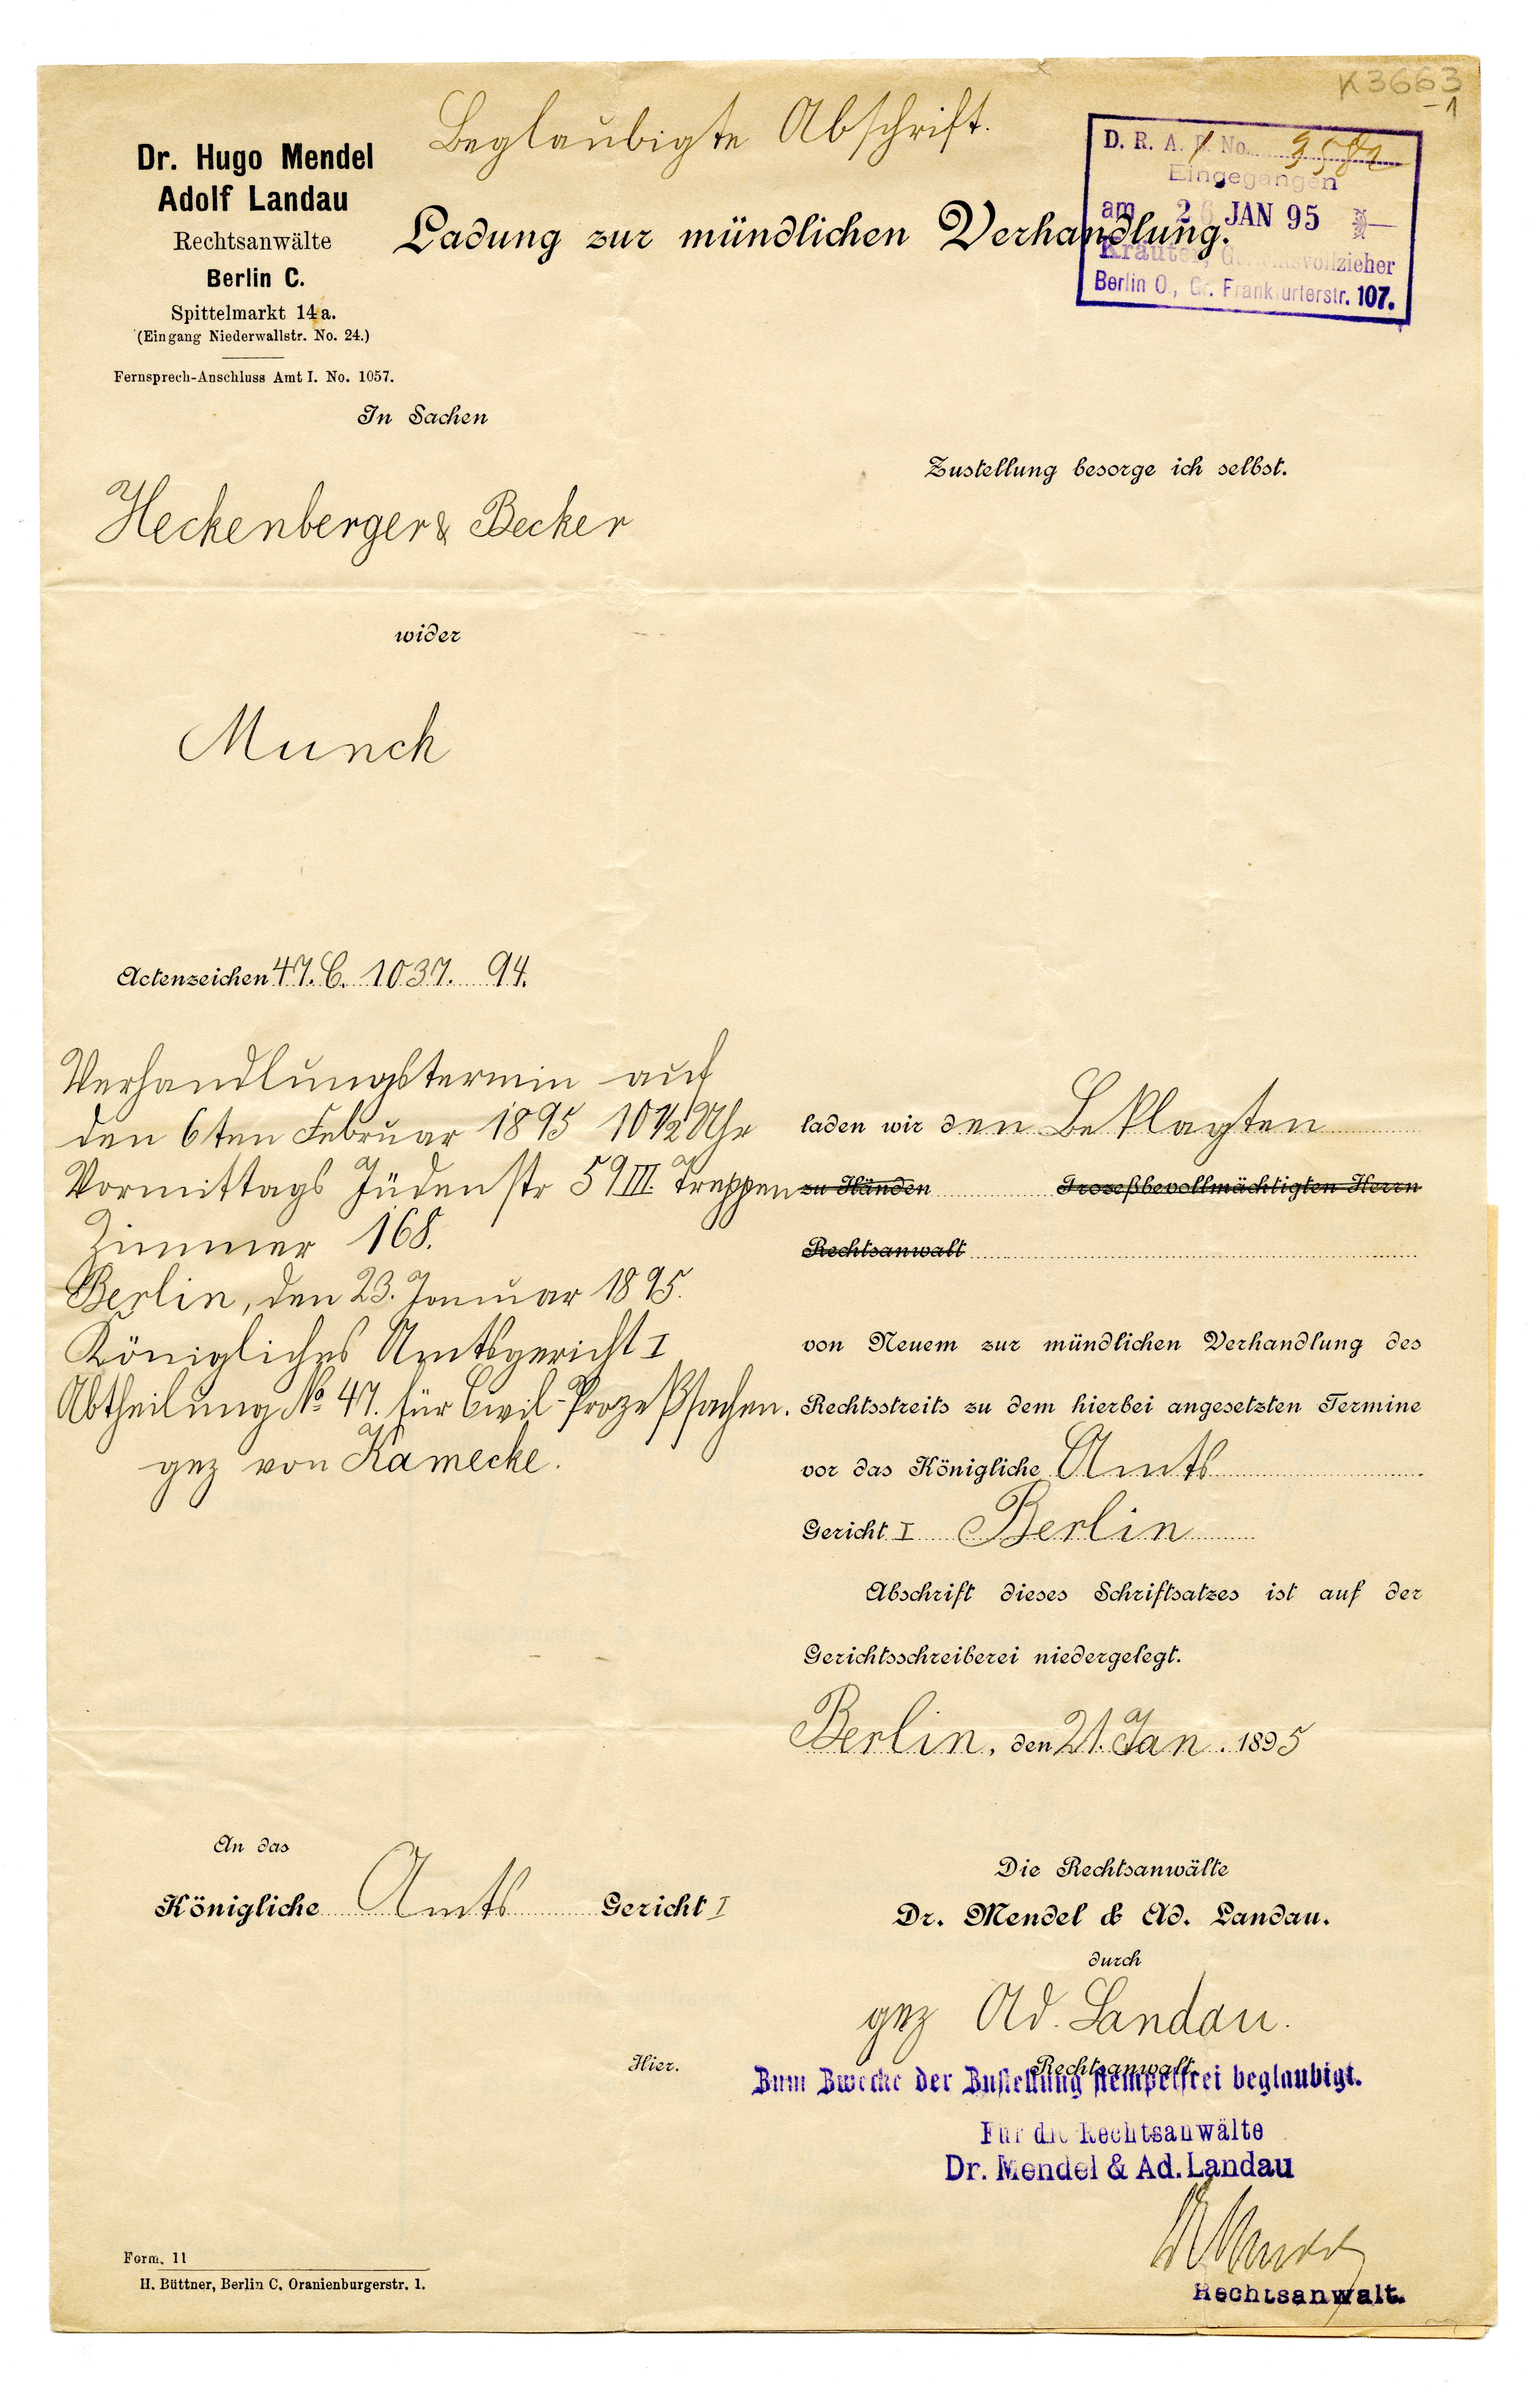 K3663
-1
Beglaubigte Abschrift.
Dr. Hugo Mendel
Adolf Landau
Rechtsanwälte
Berlin C.
Spittelmarkt 14a.
(Eingang Niederwallstr. No. 24.)
Fernsprech-Anschluss Amt I. No. 1057.
D. R. A. No.
Eingegangen
am 26 JAN 95
Kräuter, Gerichtsvollzieher
Berlin O., Gr. Frankfurterstr. 107.
Ladung zur mündlichen Verhandlung.
In Sachen
Zustellung besorge ich selbst.
Heckenberger & Becker
wider
Munch
Actenzeichen 47. C. 1037. 94.
Verhandlungstermin auf
den 6ten Februar 1895 10 1/2 Uhr
Vormittags Jüdenstr 59 III. Treppen
Zimmer 168.
Berlin, den 23. Januar 1895.
Königliches Amtsgericht I
Abtheilung No 47. für Civil-Prozeßsachen.
gez von Kamecke.
laden wir den Beklagten
zu Händen Prozeßbevollmächtigten Herrn
Rechtsanwalt
von Neuem zur mündlichen Verhandlung des
Rechtsstreits zu dem hierbei angesetzten Termine
vor das Königliche Amts
Gericht I Berlin
Abschrift dieses Schriftsatzes ist auf der
Gerichtsschreiberei niedergelegt.
Berlin, den 21. Jan. 1895
An das
Königliche Amts Gericht I
Hier.
Die Rechtsanwälte
Dr. Mendel & Ad. Landau.
durch
gez Ad. Landau.
Rechtsanwalt
Zum Zwecke der Zustellung stempelfrei beglaubigt.
Für die Rechtsanwälte
Dr. Mendel & Ad. Landau
Rechtsanwalt.
Form. 11
H. Büttner, Berlin C, Oranienburgerstr. 1.